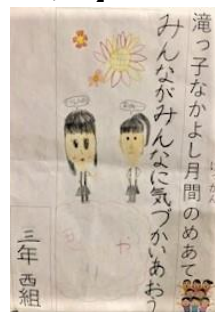 滝っ子なかよし月間のめあて
げっかん
みんながみんなに気づかいあおう
三年 西組